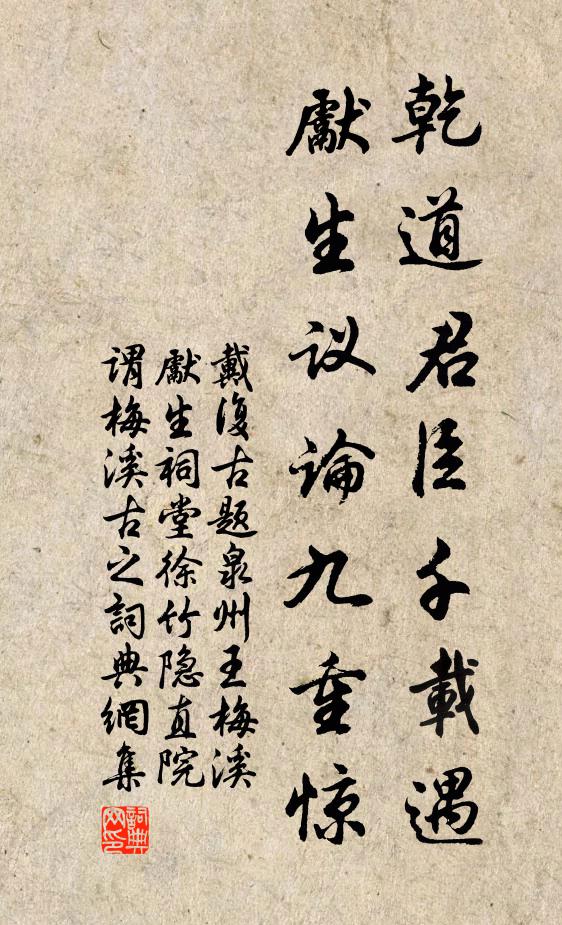 乾道君臣千載遇
獻生议論九重惊
戴復古题泉州王梅溪
獻生祠堂徐竹隐直院
谓梅溪古之詞典網集
詞典网印